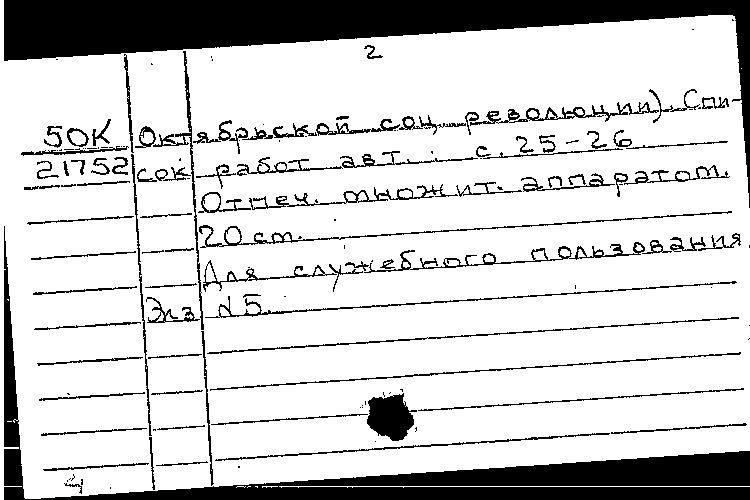 2
50К Октябрьской соц. революции). Спи-
21752 сок работ авт.: с. 25-26
Отпеч. множит. аппаратом.
20 см.
Для служебного пользования
Экз. №5.